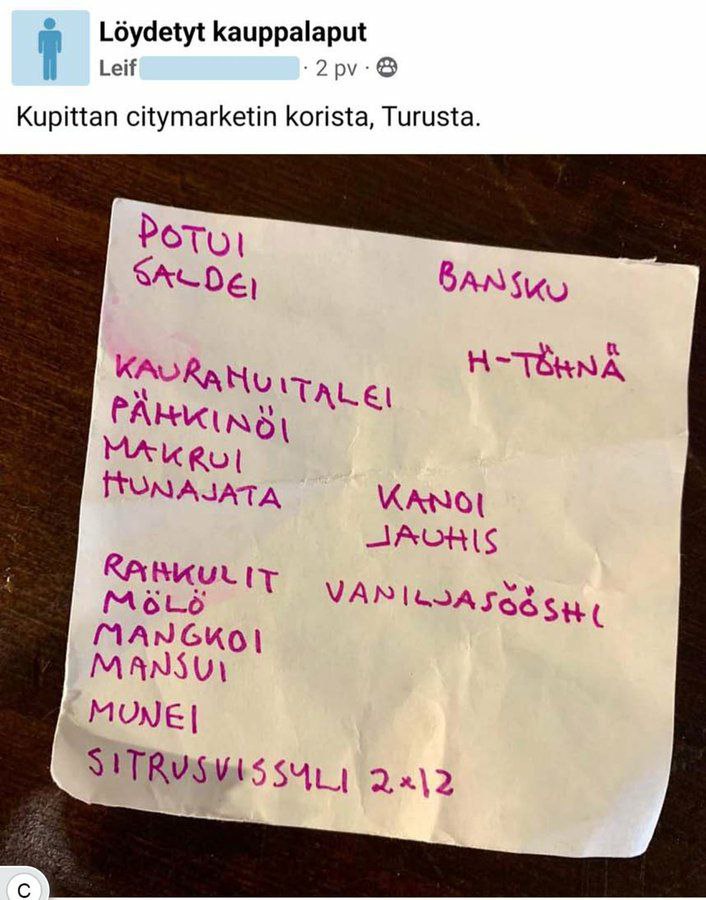 Löydetyt kauppalaput
Leif · 2 pv ·
Kupittan citymarketin korista, Turusta.
POTUI
SALDEI
BANSKU
H-TÖHNÄ
KAURAHUITALEI
PÄHKINÖI
MAKRUI
HUNAJATA
KANOI
JAUHIS
RAHKULIT
MÖLÖ
VANILJASÖÖSHI
MANGKOI
MANSUI
MUNEI
SITRUSVISSYLI 2x12
C